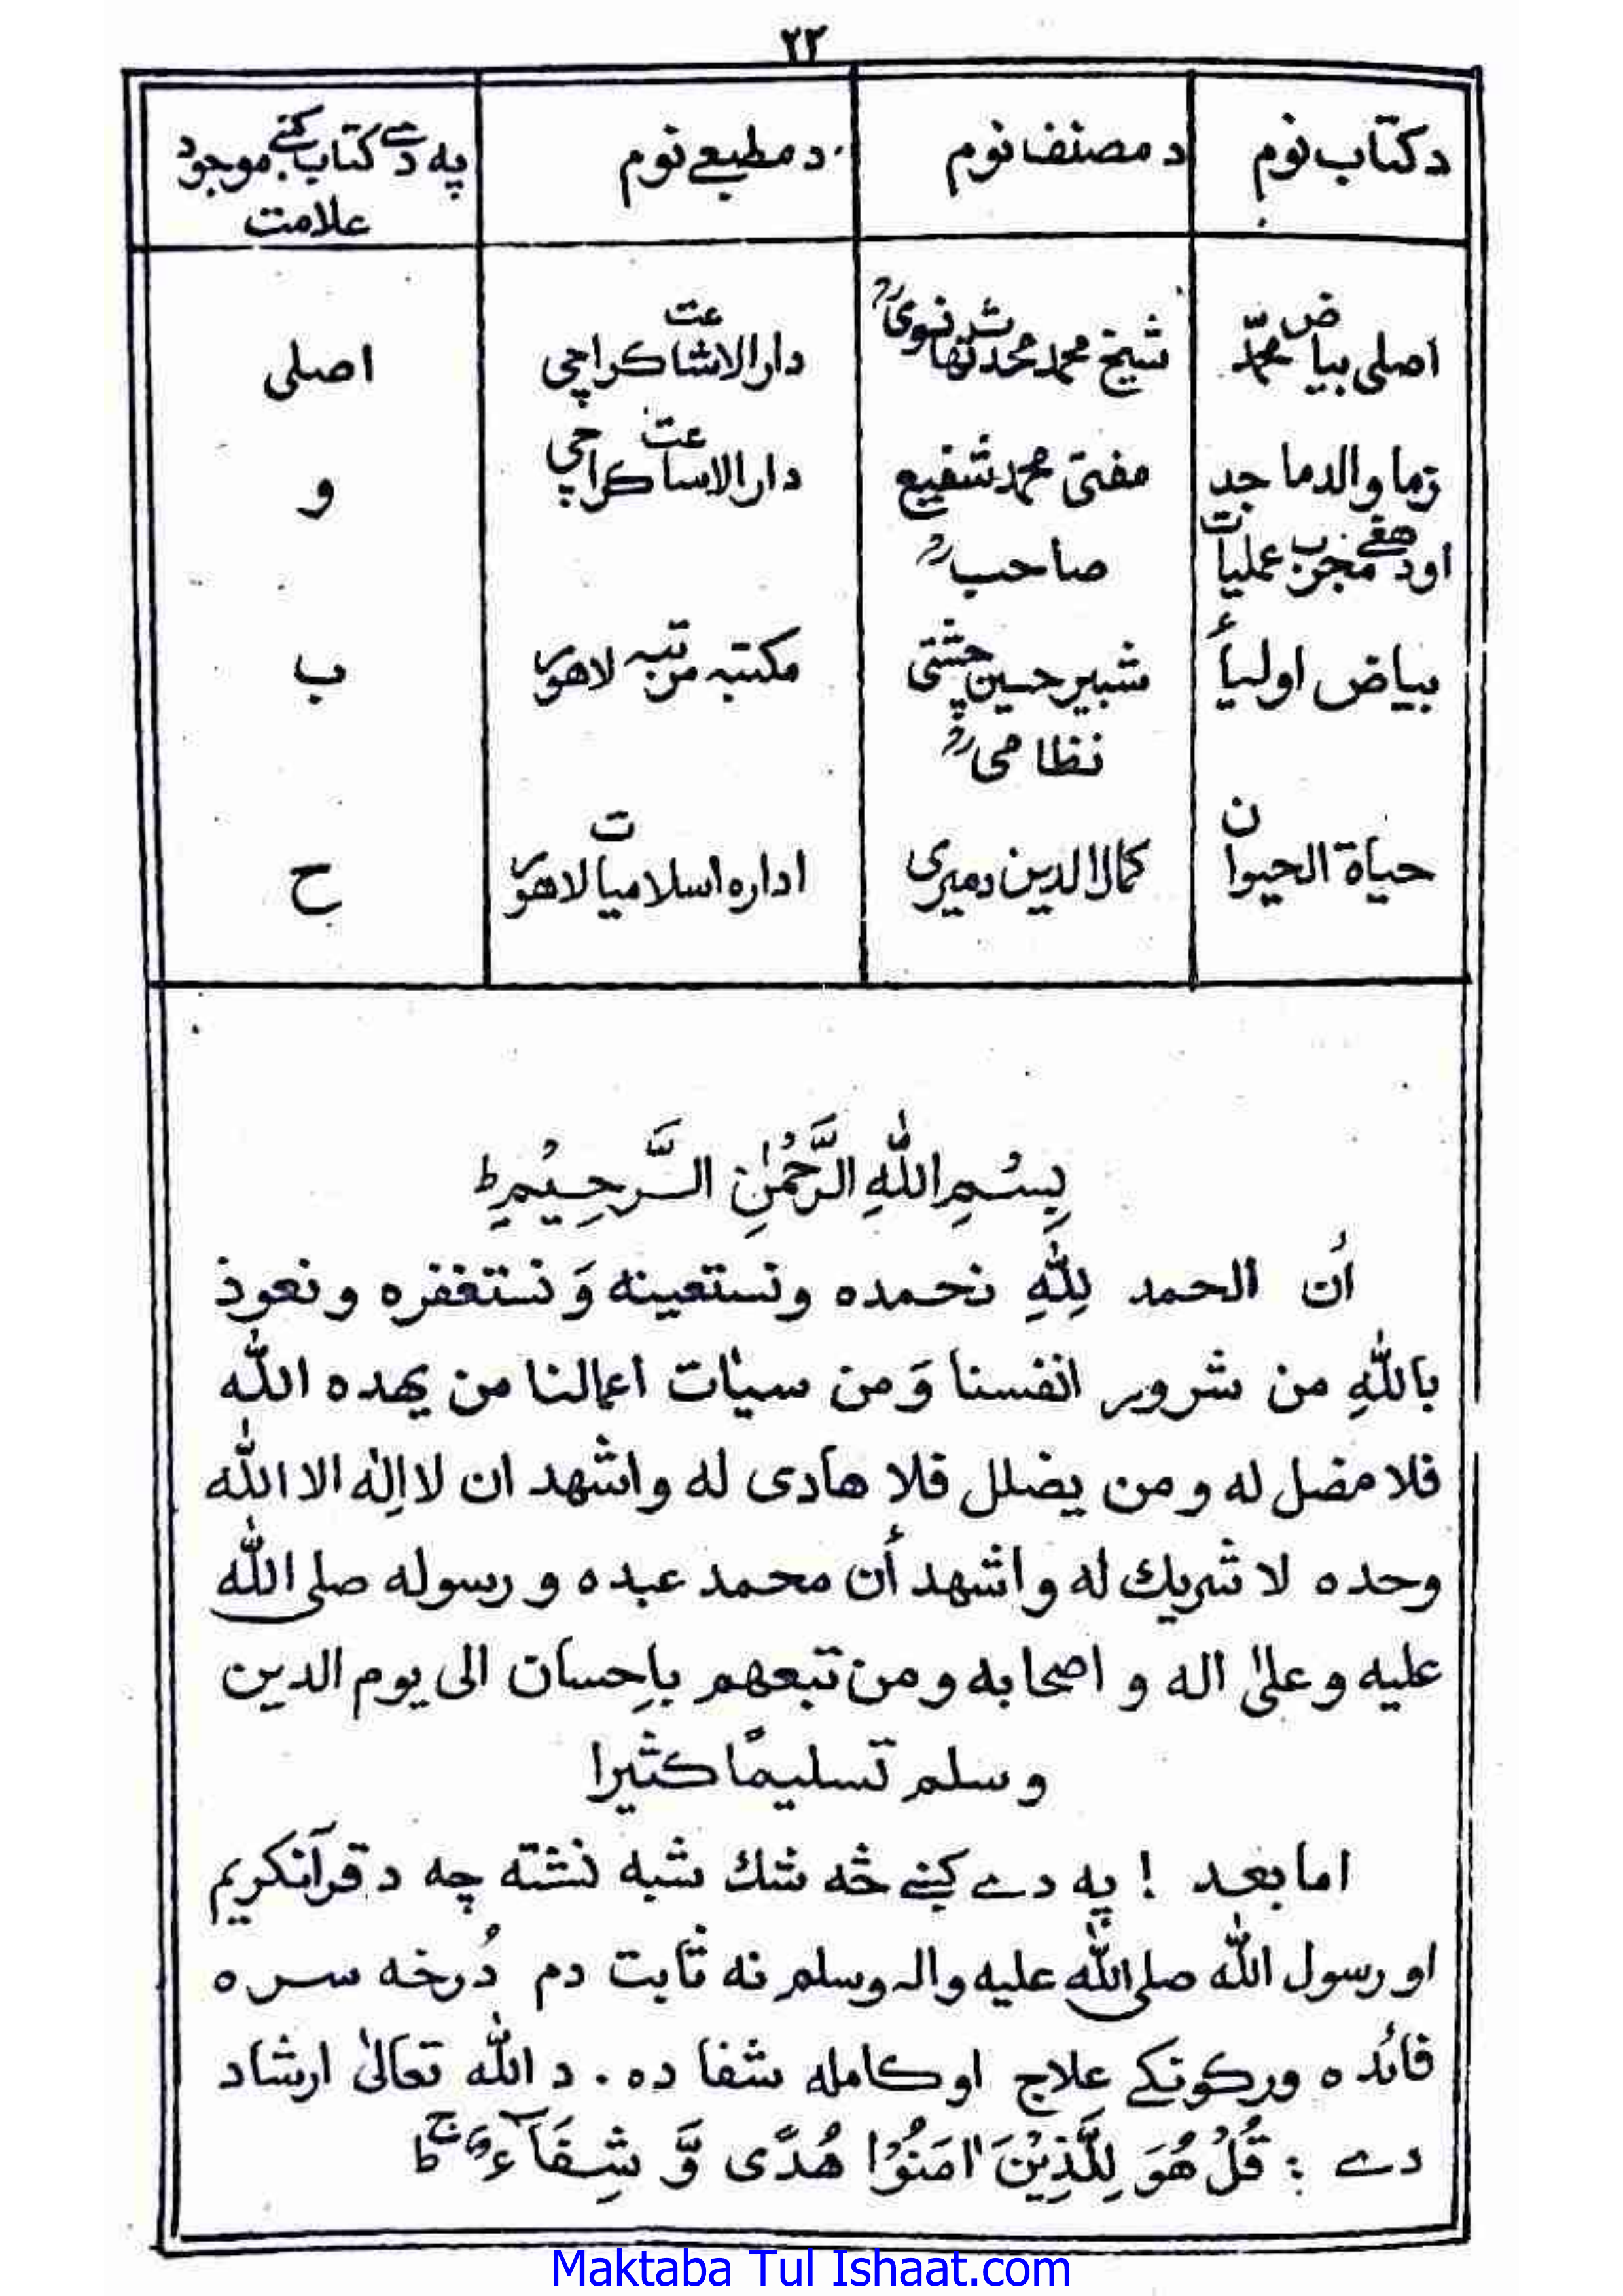 ۲۲
د کتاب نوم	د مصنف نوم	د مطبعے نوم	په دے کتاب کښے موجود علامت
اصلی بیاض محمدؐ	شیخ محمد محدث تھانویؒ	دارالاشاعت کراچی	اصلی
زما والد ماجد	مفتی محمد شفیع	دارالاساعت کراچی	و
اود ھغے مجرب عملیات	صاحبؒ
بیاض اولیأ	شبیر حسین چشتی	مکتبه مرتبه لاھور	ب
نظامیؒ
حیاة الحیوان	کمال الدین دمیری	اداره اسلامیات لاھور	ح
بِسْمِ اللّٰهِ الرَّحْمٰنِ الرَّحِیْمِ ط
أن الحمد لِلّٰهِ نحمده ونستعینه وَ نستغفره و نعوذ
باللّٰهِ من شرور انفسنا وَمن سیاٰت اعمالنا من یھده اللّٰه
فلا مضل له و من یضلل فلا ھادی له واشھد ان لا اِلٰه الا اللّٰه
وحده لا شریك له واشھد أن محمد عبده و رسوله صلی اللّٰه
علیه و علیٰ اله و اصحابه و من تبعھم بِاِحسان الی یوم الدین
وسلم تسلیمًا کثیرا
اما بعد ! په دے کښے څه شك شبه نشته چه د قرآنکریم
او رسول اللّٰه صلی اللّٰه علیه واله وسلم نه ثابت دم دُرخه سره
فائده ورکونکے علاج اوکامله شفا ده . د اللّٰه تعالیٰ ارشاد
دے : قُلْ هُوَ لِلَّذِیْنَ اٰمَنُوْا هُدًی وَّ شِفَآءٌ ج ط
Maktaba Tul Ishaat.com